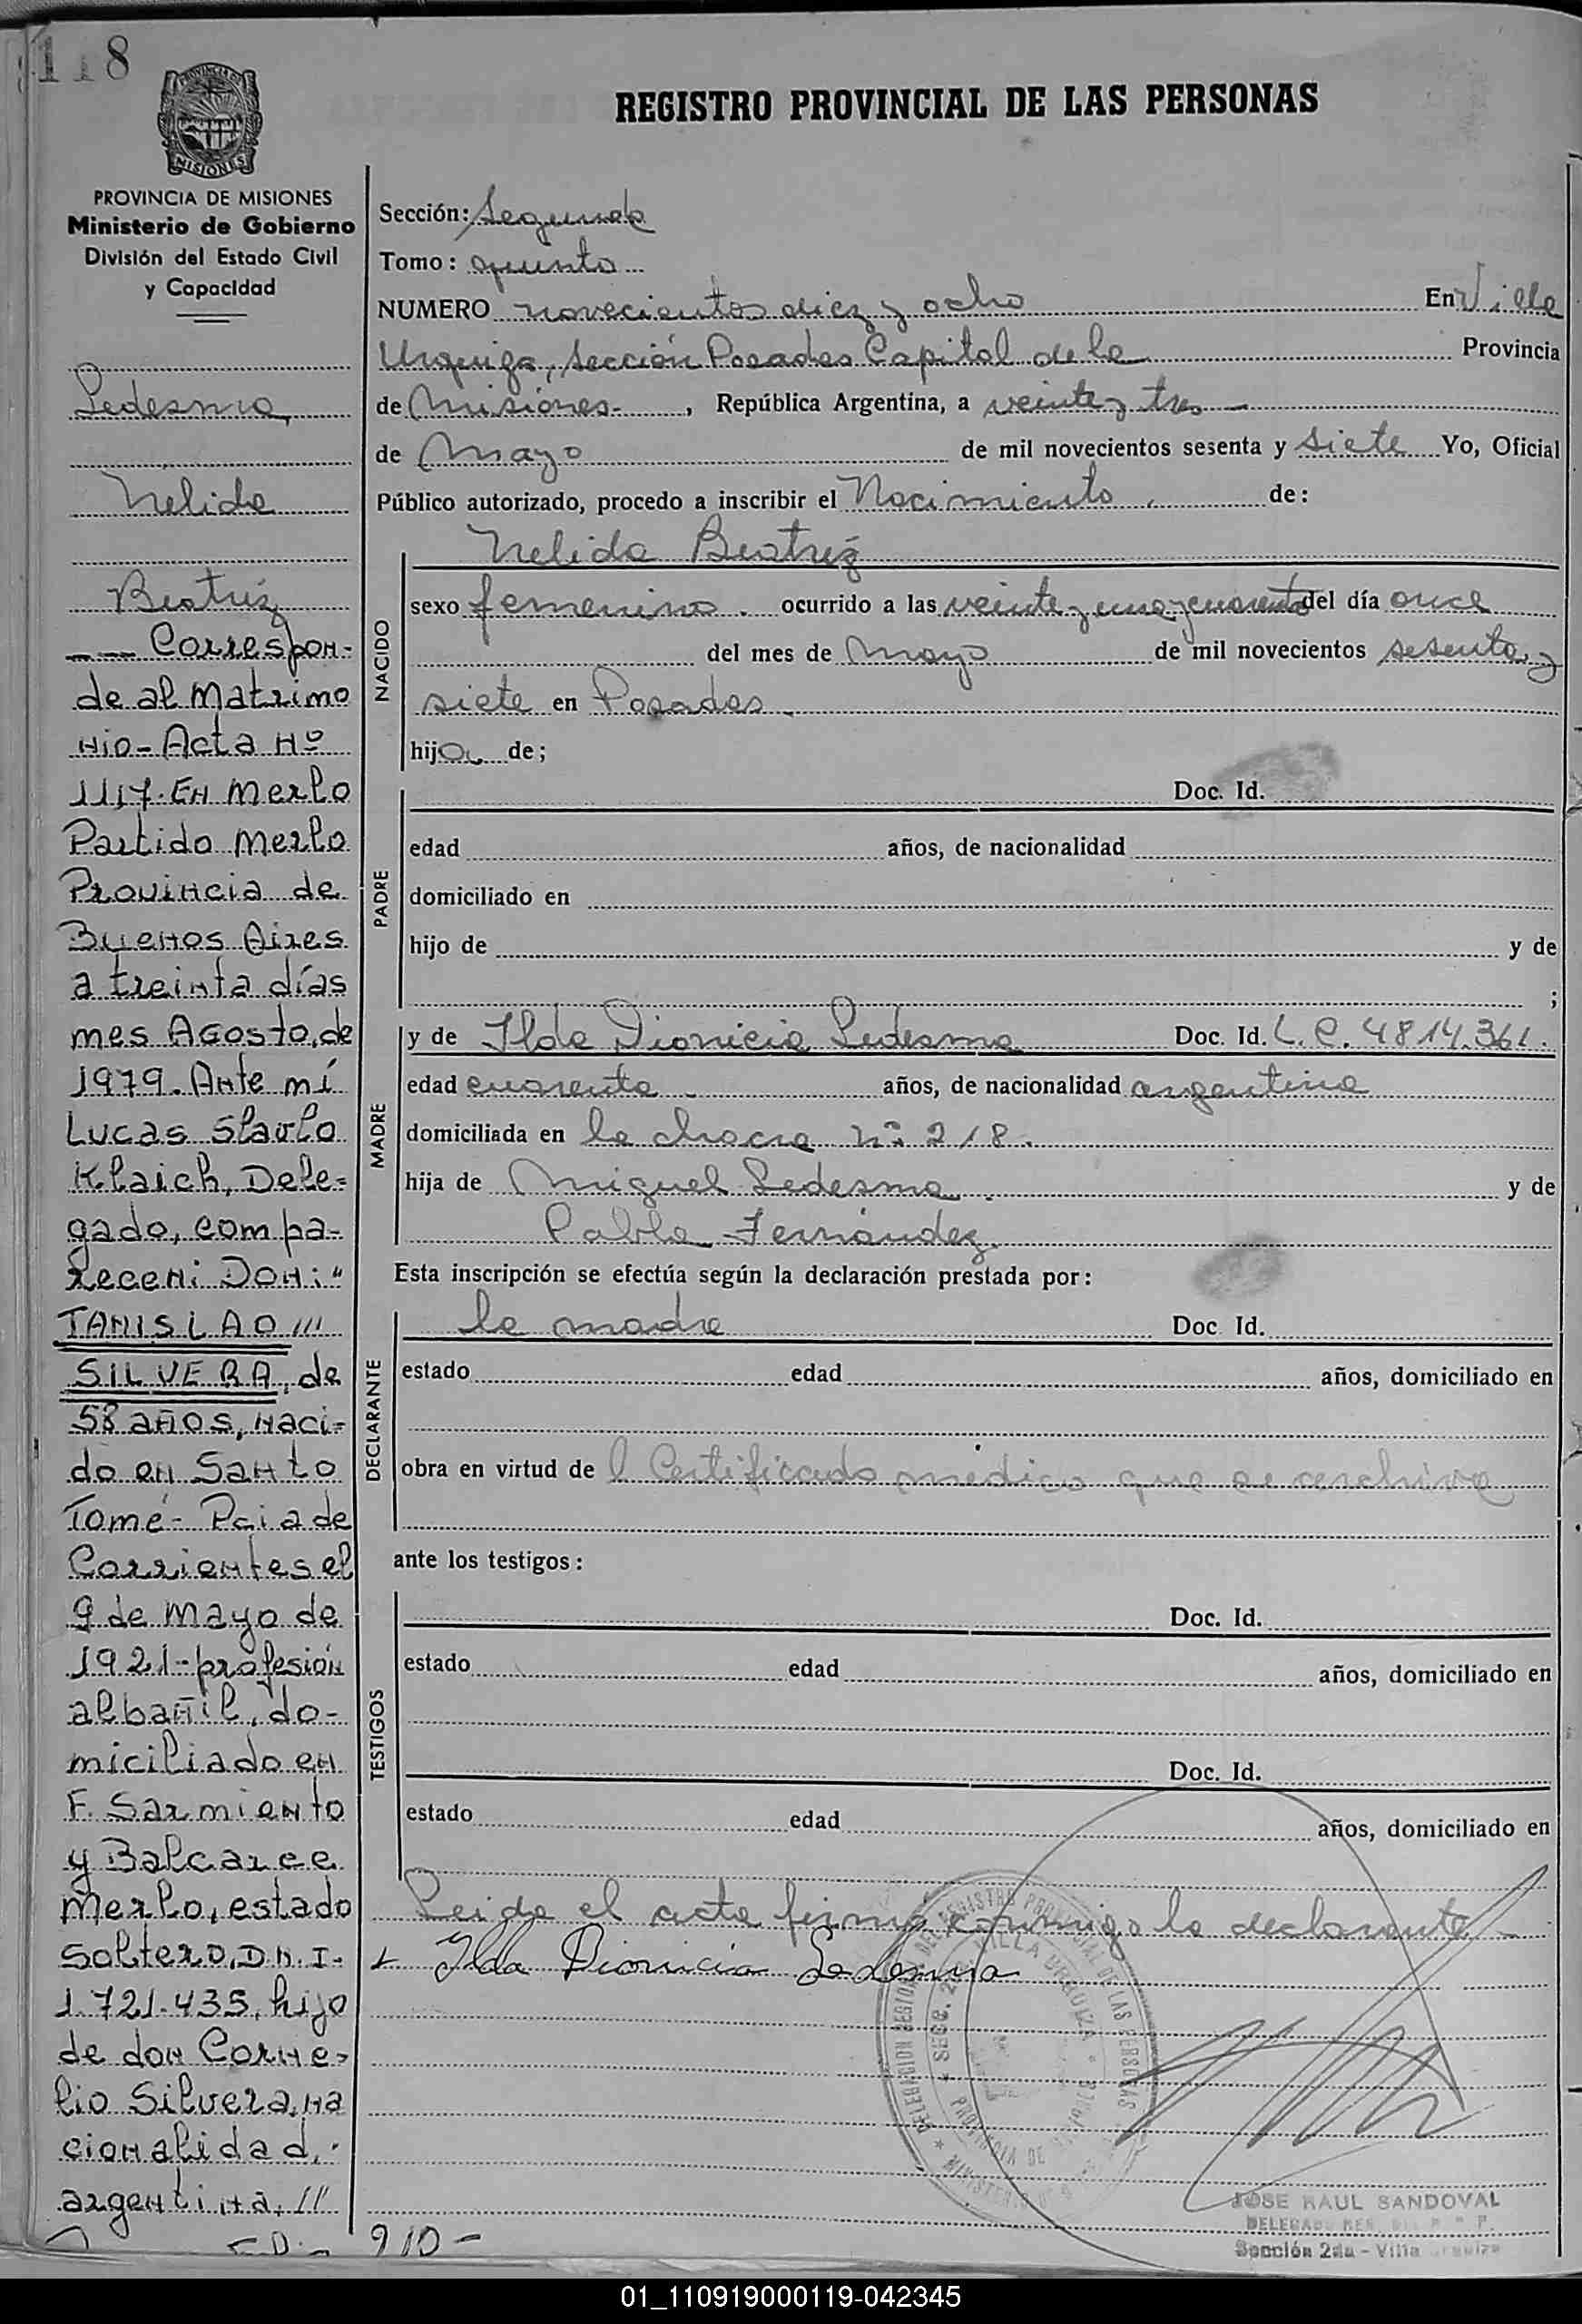 118
PROVINCIA DE MISIONES
REGISTRO PROVINCIAL DE LAS PERSONAS
PROVINCIA DE MISIONES
Ministerio de Gobierno
División del Estado Civil
y Capacidad
Ledesma,
Nelida
Beatriz
— Correspon-
de al Matrimo
nio - Acta Nº
1117. En Merlo
Partido Merlo
Provincia de
Buenos Aires
a treinta días
mes Agosto, de
1979. Ante mí
Lucas
Klaich, Dele-
gado, compa-
recen: Don:"
TANISLAO ///
SILVERA, de
58 años, naci-
do en Santo
Tomé - Pcia de
Corrientes el
9 de mayo de
1921 - profesión
albañil, do-
miciliado en
F. Sarmiento
y Balcarce
Merlo, estado
soltero, D.N.I.
1.721.435, hijo
de don Corne-
lio Silvera, na
cionalidad,
argentina, //
Sección: Segunda
Tomo: quinto
NUMERO novecientos diez y ocho En Villa
Urquiza, Sección Posadas Capital de la Provincia
de Misiones - , República Argentina, a veinte y tres —
de Mayo de mil novecientos sesenta y siete Yo, Oficial
Público autorizado, procedo a inscribir el Nacimiento. de:
NACIDO
Nelida Beatriz
sexo femenino. ocurrido a las veinte y una y cuarenta del día once
del mes de Mayo de mil novecientos sesenta y
siete en Posadas.
hija de;
PADRE
Doc. Id.
edad años, de nacionalidad
domiciliado en
hijo de y de
;
MADRE
y de Ilda Dionicia Ledesma Doc. Id. L.C. 4814.361.
edad cuarenta. años, de nacionalidad argentina
domiciliada en la chacra nº 218.
hija de Miguel Ledesma. y de
Pabla Fernández
Esta inscripción se efectúa según la declaración prestada por:
DECLARANTE
la madre Doc Id.
estado edad años, domiciliado en
obra en virtud de l Certificado médico que se archiva
ante los testigos:
TESTIGOS
Doc. Id.
estado edad años, domiciliado en
Doc. Id.
estado edad años, domiciliado en
Leida el acta firma conmigo la declarante —
Ilda Dionicia Ledesma
DELEGACION DEL REGISTRO PROVINCIAL DE LAS PERSONAS
SECC. 2 VILLA URQUIZA
PROVINCIA DE
JOSE RAUL SANDOVAL
Sección 2da - Villa Urquiza
910 -
01_110919000119-042345